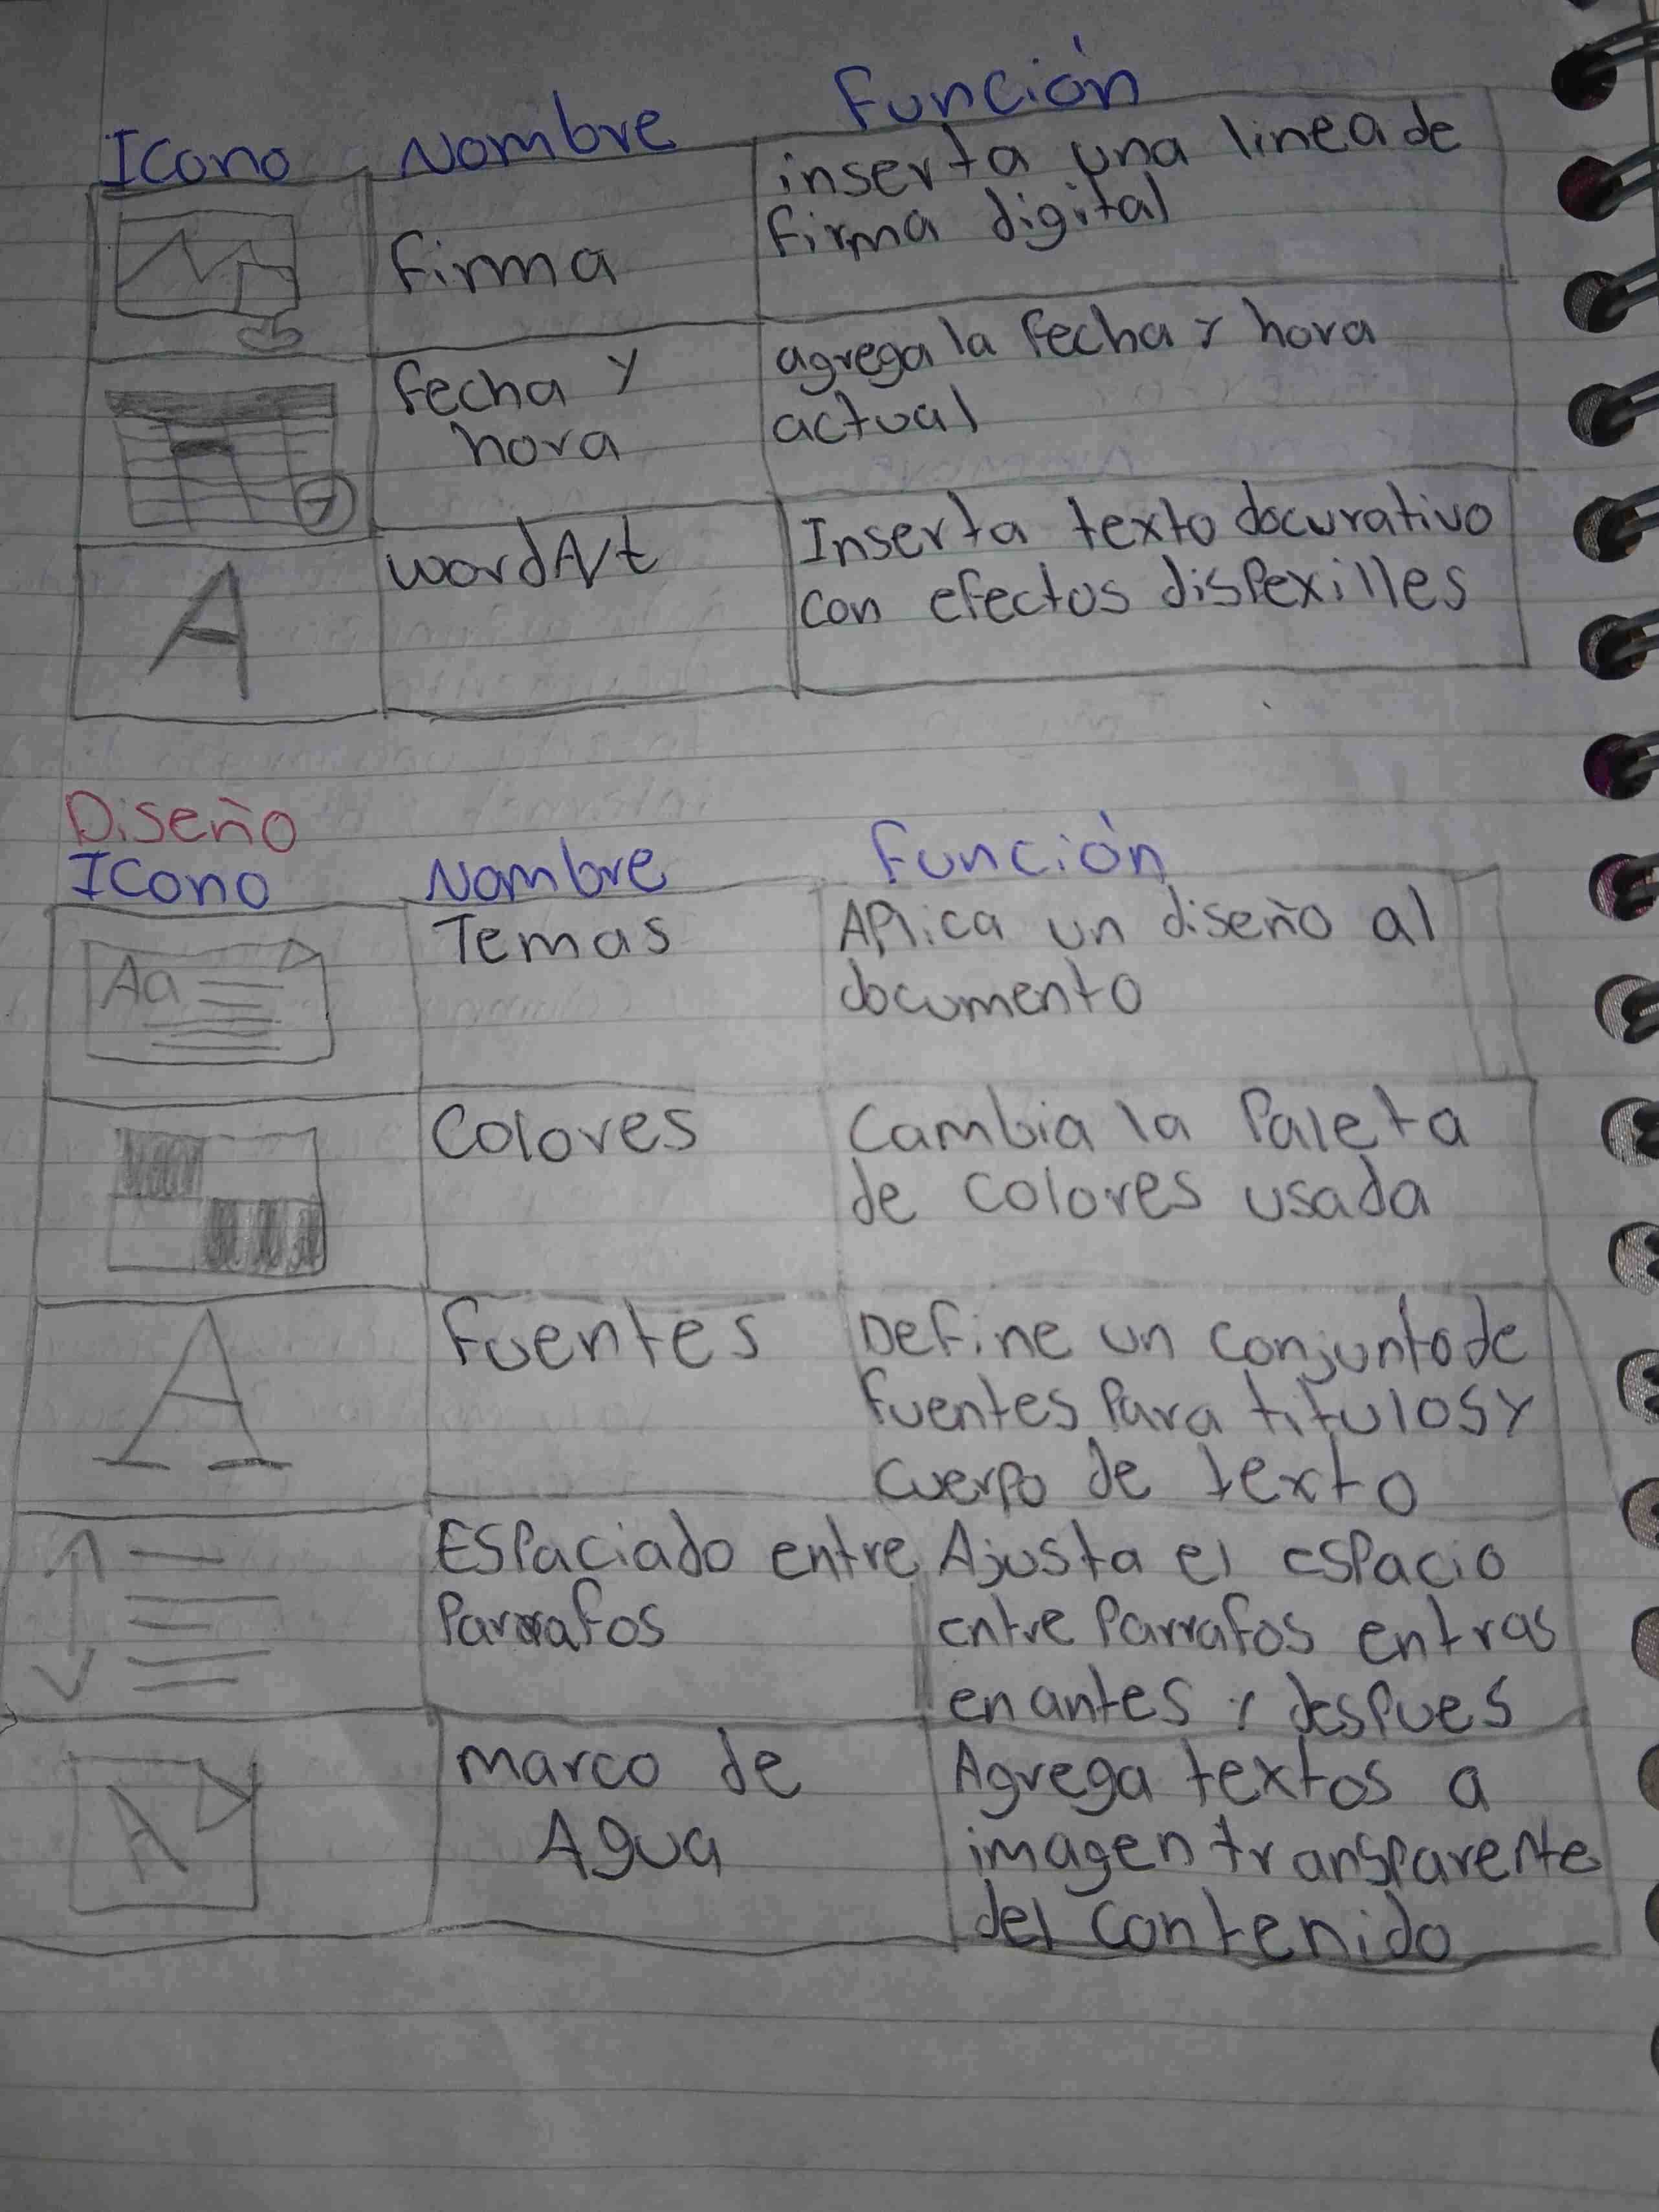 Icono Nombre Función
firma
inserta una linea de
firma digital
fecha y
hora
agrega la fecha y hora
actual
A
wordArt
Inserta texto docurativo
con efectos disfexilles
Diseño
Icono Nombre Función
Aa
Temas
Aplica un diseño al
documento
Colores
Cambia la Paleta
de colores usada
A
fuentes
Define un conjunto de
fuentes para titulos y
cuerpo de texto
Espaciado entre
Parrafos
Ajusta el espacio
entre Parrafos entras
en antes y despues
A
marco de
Agua
Agrega textos a
imagen transparente
del contenido